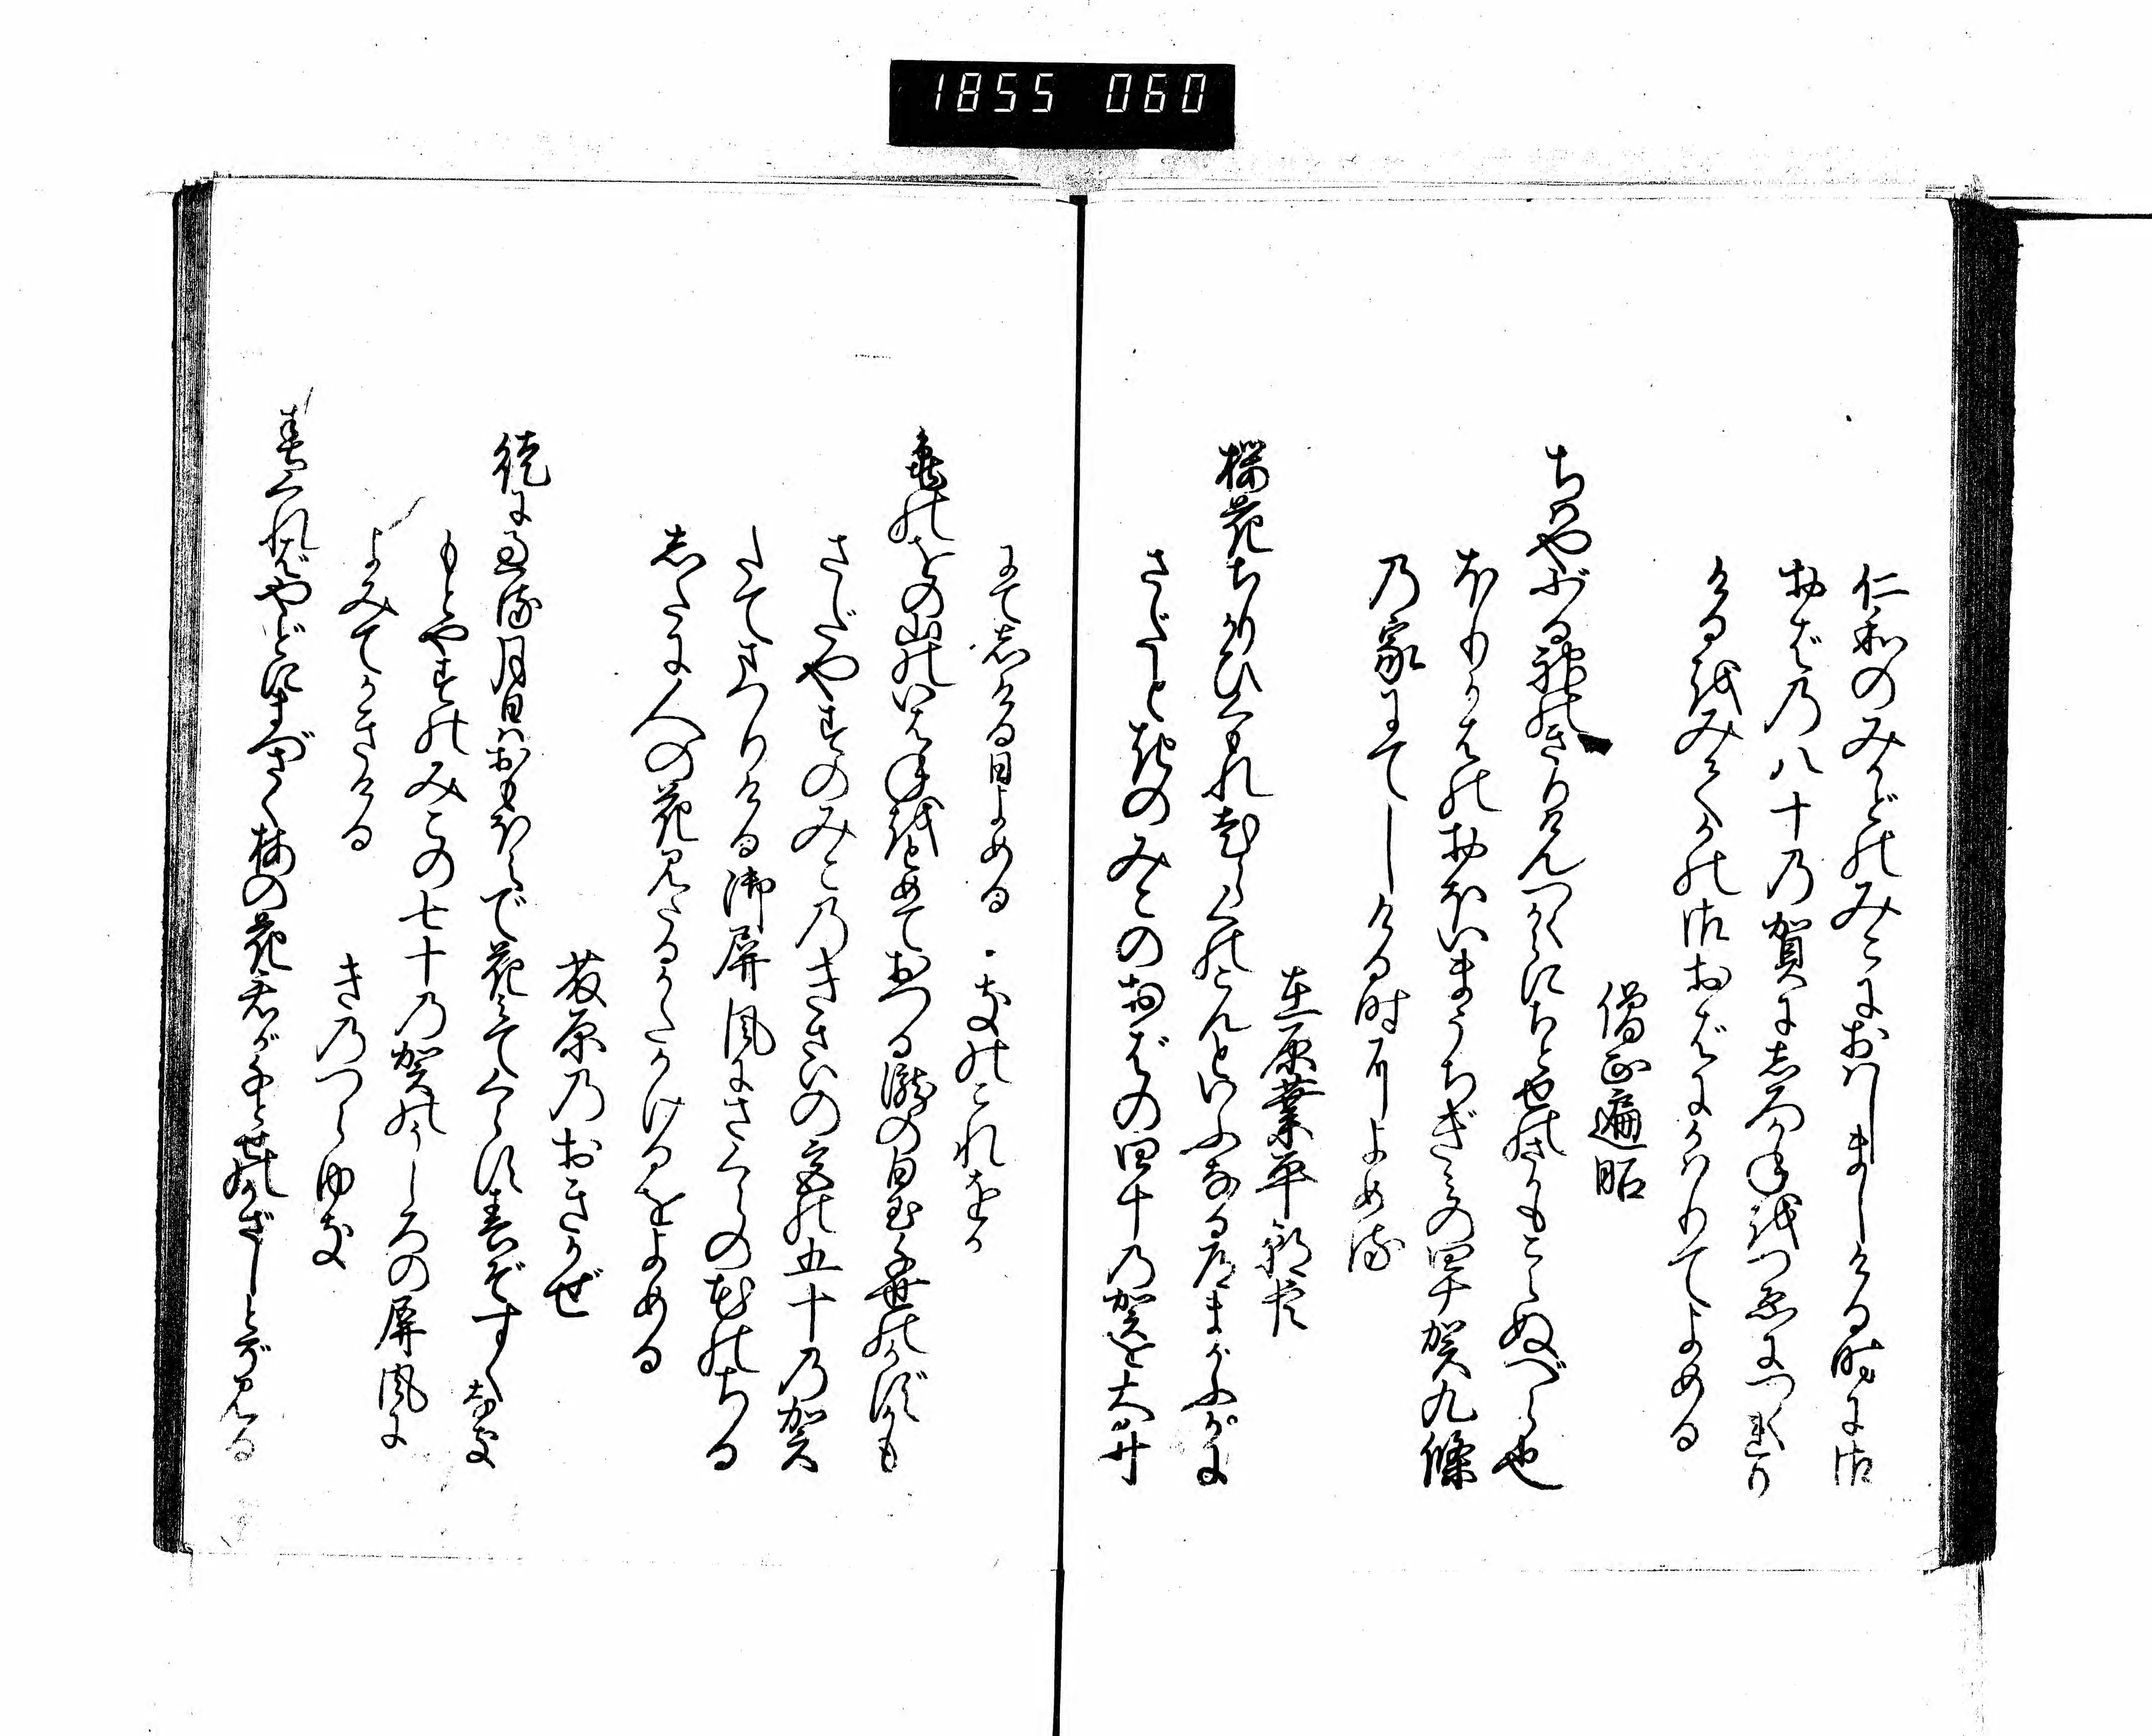 1855 060
仁和のみかどのみこにおはしましける時に御
おば乃八十乃賀にしろかねをつゑにつくれり
けるをみてかの御おばにかはりてよめる
僧正遍昭
ちはやぶる神のきりけんつくからにちとせのさかもこえぬべら也
ほりかはのおほいまうちぎみの四十賀九條
乃家にてしける時によめる
在原業平朝臣
桜花ちりかひくもれ老らくのこんといふなる道まがふがに
さだときのみこのおばの四十乃賀を大井
にてしける日よめる きのこれをか
亀のをの山のいはねをとめておつる瀧の白玉千世のかずかも
さだやすのみこ乃きさいの宮の五十乃賀
たてまつりける御屏風にさくらの花のちる
したに人の花見たるかたかけるをよめる
藤原乃おきかぜ
徒に過る月日はおもほえで花みてくらす春ぞすくなき
もとやすのみこの七十乃賀のうしろの屏風に
よみてかきける
き乃つらゆき
春くればやどにまづさく梅の花君が千とせのかざしとぞ見る